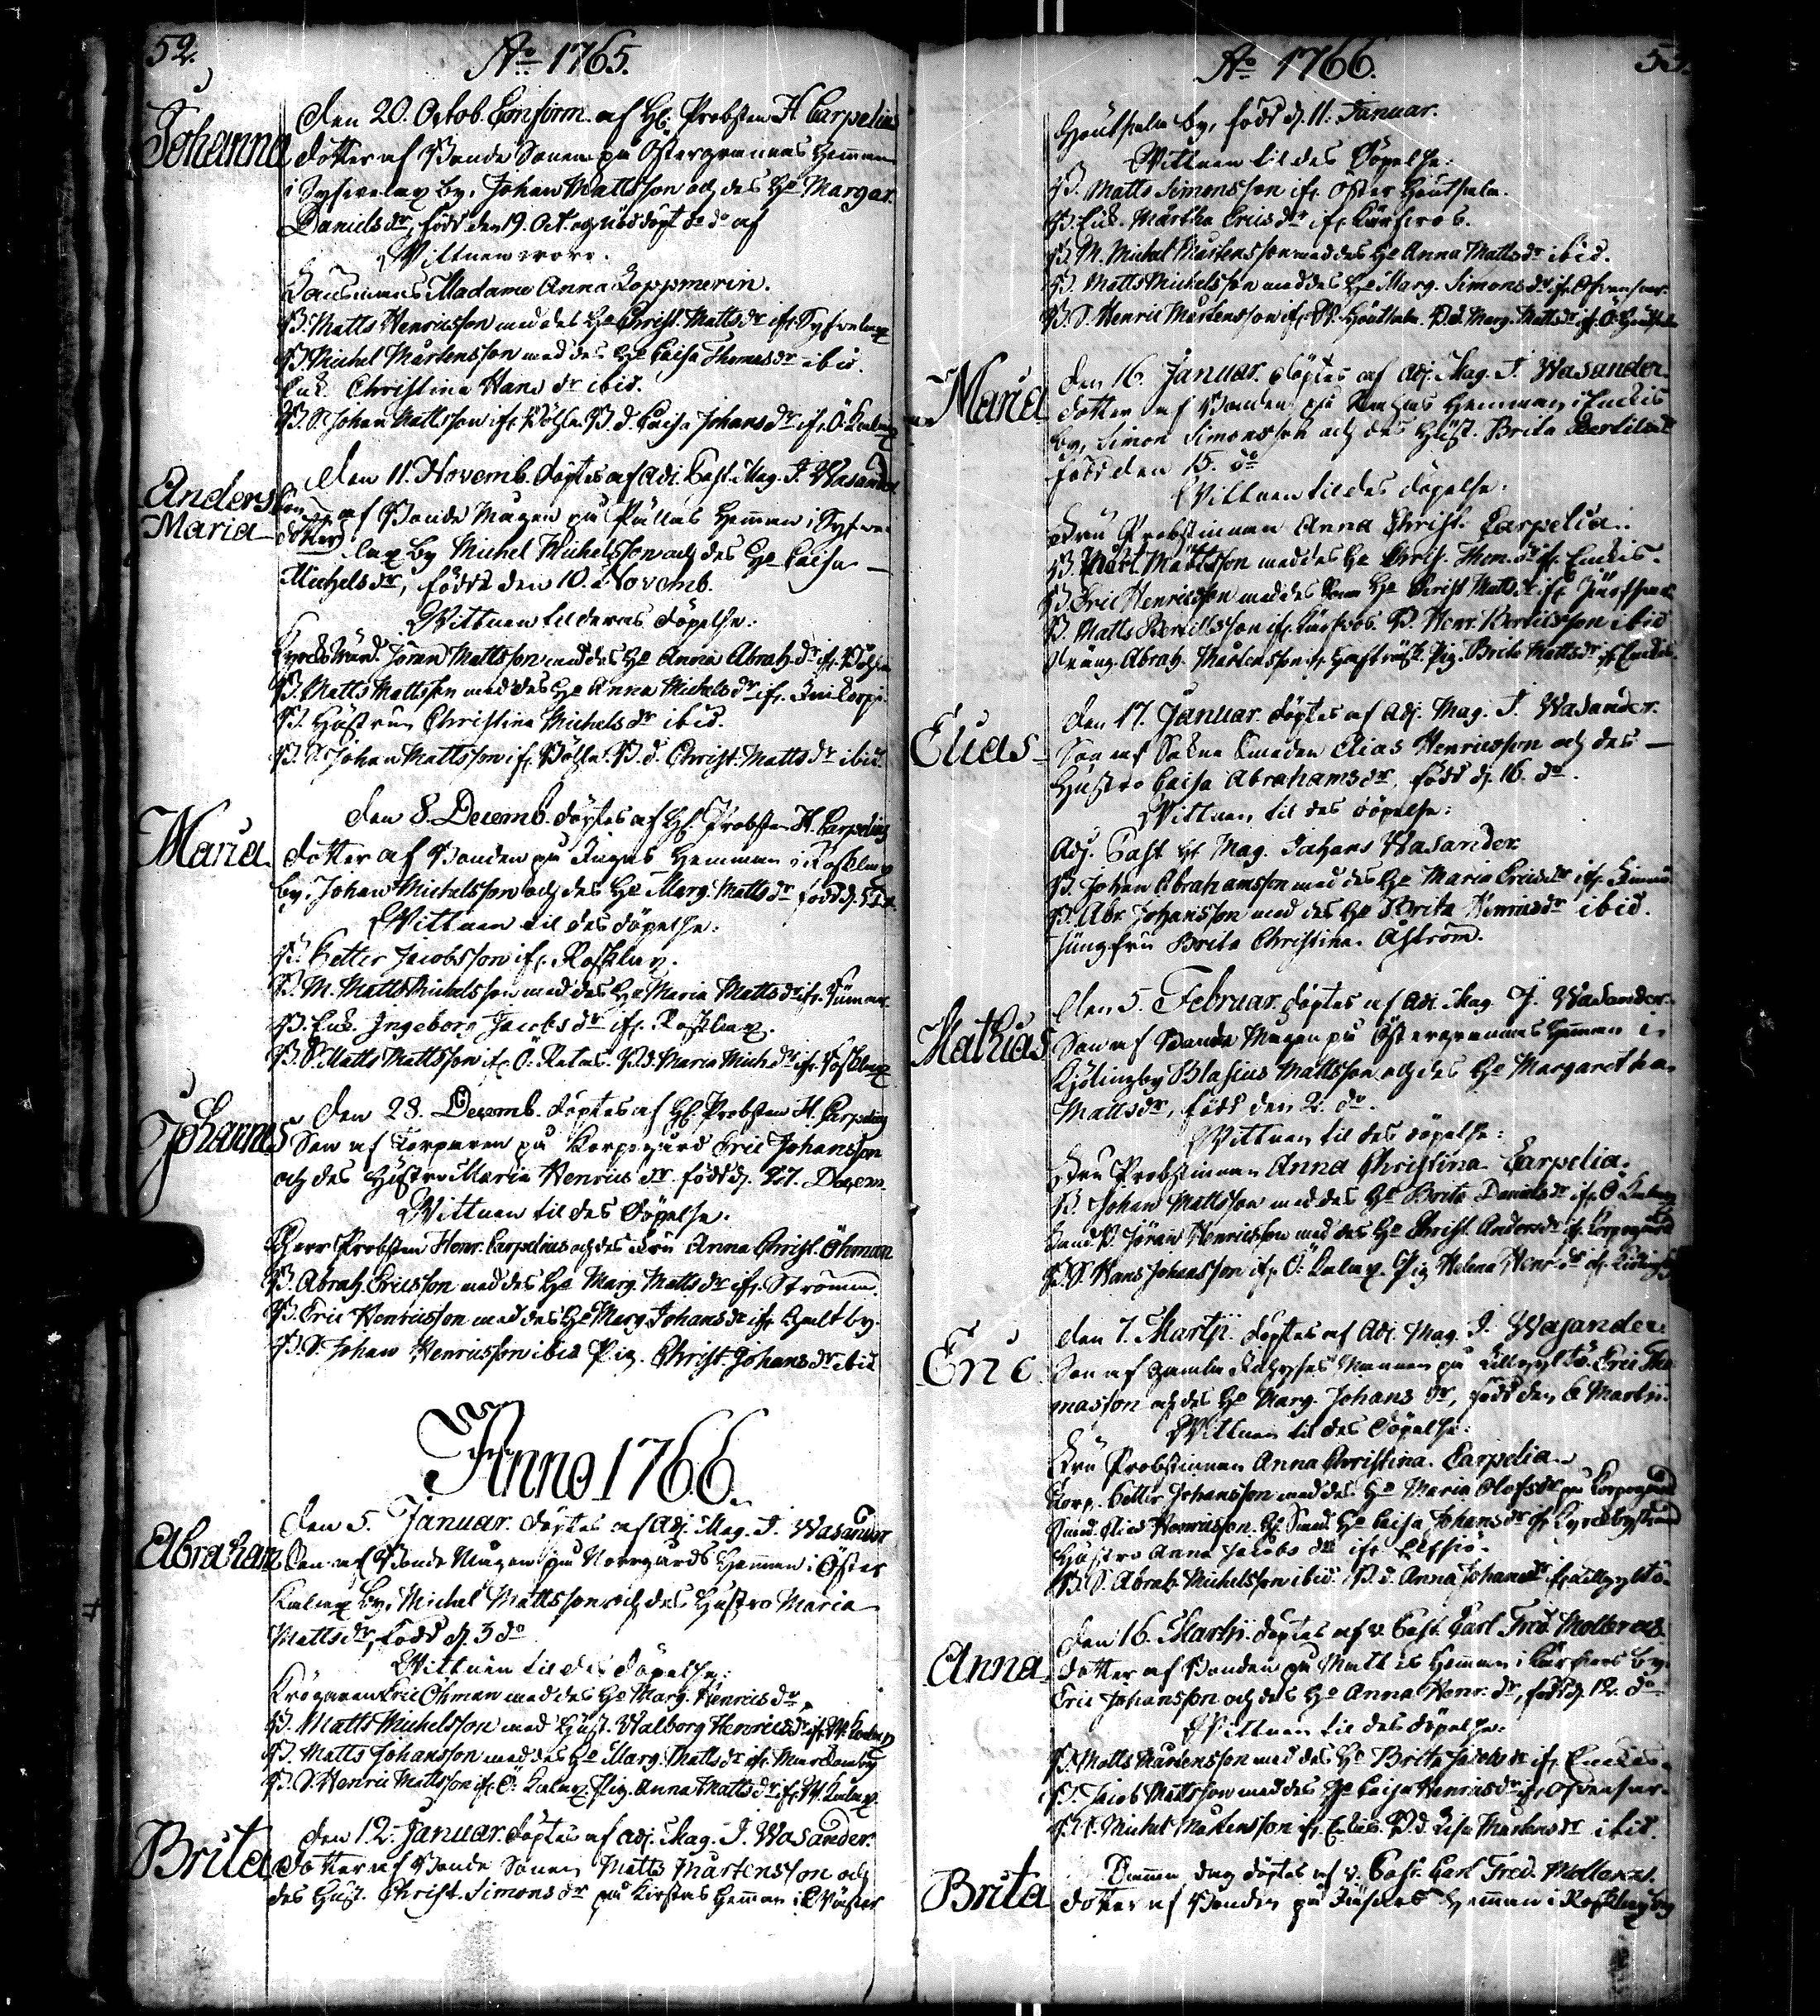 52.
Ao. 1765.
Johanna
Den 20. Octob. Confirm. af H. Probsten H. Carpelius
dotter af Bonde Sonen på Östergrannas Hemman
i Syfvelax by, Johan Mattsson och des H. Margar.
Daniels dr, född den 19. Oct.
Wittnen wore.
Madame Anna
B. Matts Henricsson med des H. Christ. Matts dr ifr. Syfvelax
B. Michel Mårtensson med des H. Caisa Thomas dr ibid.
Enk. Christina Hans dr ibid.
B. S. Johan Mattsson ifr. B. d. Caisa Johans dr ifr. Ö. Kalax
Anders
Maria
Den 11. Novemb. döptes af Adj. Past. Mag. J. Wasander
Son
dotter
af Bonde Mågen på Pållas Hemman i Syfve-
lax by Michel Michelsson och des H. Caisa
Michels dr, födde den 10. Novemb.
Wittnen til deras döpelse:
Kyrckwärd. Jöran Mattsson med des H. Anna Abrah. dr ifr.
B. Matts Mattsson med des H. Anna Michels dr ifr.
B. Hustrun Christina Michels dr ibid.
B. S. Johan Mattsson ifr. B. d. Christ. Matts dr ibid.
Maria
Den 8. Decemb. döptes af H. Probsten H. Carpelius
dotter af Bonden på Hemman i Rosklax
by, Johan Michelsson och des H. Marg. Matts dr född d. 5
Wittnen til des döpelse:
B. Petter Jacobsson ifr. Rosklax.
B. M. Matts Michelsson med des H. Maria Matts dr ifr.
B. Enk. Ingeborg Jacobs dr ifr. Rosklax.
B. S. Matts Mattsson ifr. Ö. B. d. Maria Mich. dr ifr. Rosklax
Johannes
Den 28. Decemb. döptes af H. Probsten H. Carpelius
Son af Torparen på Korpogård Eric Johansson
och des Hustro Maria Henrics dr. född d. 27. Decem.
Wittnen til des Döpelse.
Herr Probsten Henr. Carpelius och des Fru Anna Christ. Öhman
B. Abrah. Ericsson med des H. Marg. Matts dr ifr. Strömma.
B. Eric Henricsson med des H. Marg. Johans dr ifr. Galtby.
B. S. Johan Henricsson ibid Pig. Christ. Johans dr ibid
Anno 1766.
Abraham
Den 5. Januar. döptes af Adj. Mag. J. Wasander
Son af Bonde Mågen på Norrgårds Hemman i Öster
Kalax by, Michel Mattsson och des Hustro Maria
Matts dr, född d. 3 do
Wittnen til des döpelse:
Krögaren Eric Öhman med des H. Marg. Henrics dr.
B. Matts Michelsson med Hust. Walborg Henrics dr ifr. W. Kalax
B. Matts Johansson med des H. Marg. Matts dr ifr. Markomby
B. S. Henric Mattsson ifr. Ö. Kalax. Pig. Anna Matts dr ifr. W. Kalax.
Brita
Den 12. Januar. döptes af Adj. Mag. J. Wasander.
dotter af Bonde Sonen Matts Mårtensson och
des Hust. Christ. Simons dr på Kirstas Hemman i Wäster
Ao 1766.
53.
by, född d. 11. Januar.
Wittnen til des Döpelse:
B. Matts Simonsson ifr. Öster
B. Enk. Märtha Erics dr ifr.
B. M. Michel Mårtensson med des H. Anna Matts dr ibid.
B. Matts Michelsson med des H. Marg. Simons dr ifr.
B. S. Henric Mårtensson ifr. W. B. d. Marg. Matts dr ifr. Ö.
Maria
Den 16. Januar. döptes af Adj. Mag. J. Wasander
dotter af Bonden på Hemman i Enckis
by, Simon Simonsson och des Hust. Brita Bertils dr
född den 15. do
Wittnen til des döpelse:
Fru Probstinnan Anna Christ. Carpelia.
B. Mårt. Mattsson med des H. Christ. Thom. dr ifr. Enckis.
B. Eric Henricsson med des H. Christ. Matts dr ifr.
B. Matts Bertilsson ifr. B. Henr. Bertilsson ibid
Dräng. Abrah. Mårtensson ifr. Pig. Brita Matts dr ifr. Enckis.
Elias
Den 17. Januar. döptes af Adj. Mag. J. Wasander.
Son af Sockne Smeden Elias Henricsson och des
Hustro Caisa Abrahams dr, född d. 16. do.
Wittnen til des döpelse:
Adj. Past. H. Mag. Johans Wasander
B. Johan Abrahamsson med des H. Maria Erics dr ifr.
B. Abr. Johansson med des H. Brita Henrics dr ibid.
Jungfru Brita Christina Åström.
Mathias
Den 5. Februar. döptes af Adj. Mag. J. Wasander.
Son af Bonde Mågen på Östergrannas Hemman i
by Blasius Mattsson och des H. Margaretha
Matts dr, född den 2. do.
Wittnen til des döpelse:
Fru Probstinnan Anna Christina Carpelia.
B. Johan Mattsson med des H. Brita Daniels dr ifr. Ö. Kalax
Jöran Henricsson med des H. Christ. Anders dr ifr. Korpogård
B. S. Hans Johansson ifr. Ö. Kalax. Pig Helena Henr. dr ifr.
Eric
Den 7. Martii. döptes af Adj. Mag. J. Wasander.
Son af gamla på Lillgyltö. Eric Tho-
masson och des H. Marg. Johans dr, född den 6 Martii.
Wittnen til des Döpelse:
Fru Probstinnan Anna Christina Carpelia.
Torp. Petter Johansson med des H. Maria Olofs dr på Korpogård
Smed. Elias Henricsson H. Caisa Johans dr ifr. Kyrckbystrand
Hustro Anna Jacobs dr ifr.
B. S. Abrah. Michelsson ibid. B. d. Anna Johans dr ifr. Lillgyltö.
Anna
Den 16. Martii. döptes af v. Past. Carl Fred. Mollerus.
dotter af Bonden på Matt is Hemman i by.
Eric Johansson och des H. Anna Henr. dr, född d. 12. do
Wittnen til des döpelse:
B. Matts Mårtensson med des H. Brita Jacobs dr ifr. Enckis.
B. Jacob Mattsson med des H. Caisa Henrics dr ifr.
B. S. Michel Mårtensson ifr. Enkis. B. d. Lisa Mårtens dr ibid.
Brita
Samma dag döptes af v. Past. Carl Fred. Mollerus.
dotter af Bonden på Hemman i Rosklax by